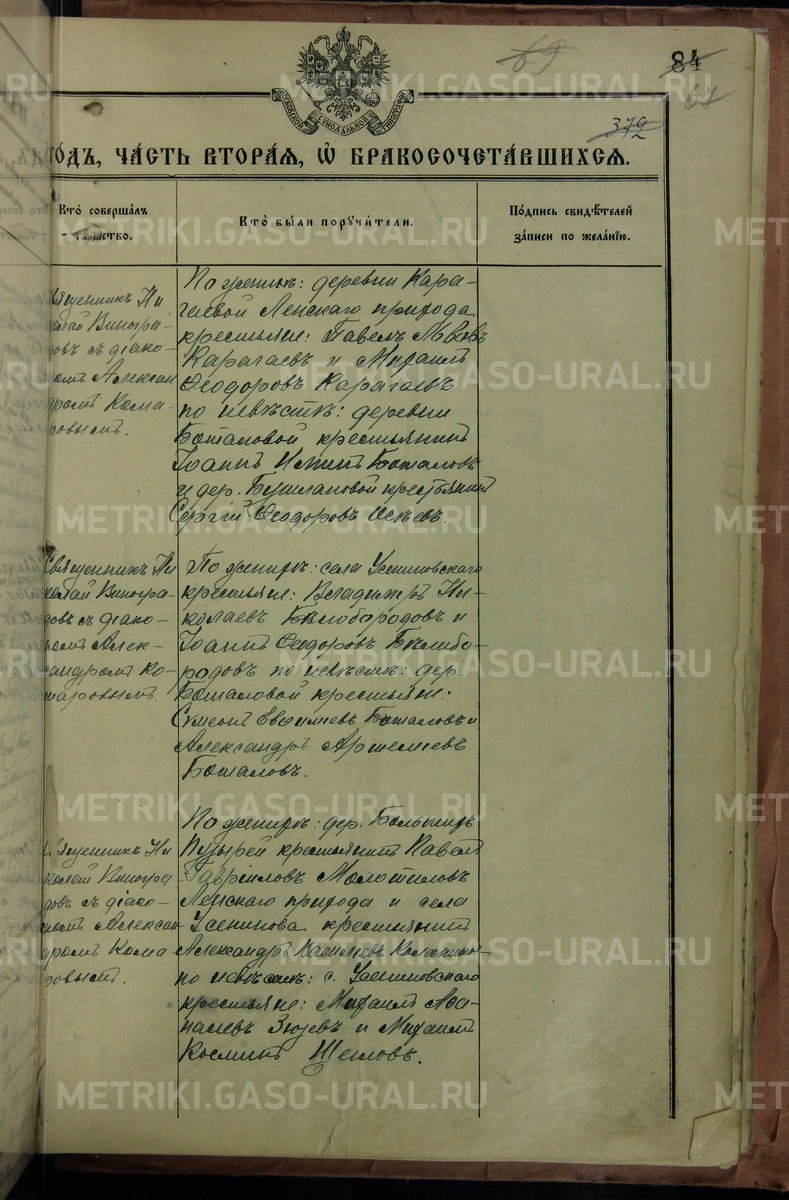 69
84
61
372
МОСКОВСКОЙ СѴНОДАЛЬНОЙ ТИПОГРАФІИ
ГОДЪ, ЧАСТЬ ВТОРАЯ, Ѡ БРАКОСОЧЕТАВШИХСЯ.
Кто совершалъ таинство.
Кто были поручители.
Подпись свидѣтелей записи по желанію.
Священникъ Ни
колай Виногра-
довъ съ діако-
номъ Алексан
дромъ Кома-
ровымъ.
По женихѣ: деревни Кара-
гаевой Ленскаго прихода
крестьяне: Павелъ Львовъ
Карагаевъ и Михаилъ
Ѳеодоровъ Карагаевъ
по невѣстѣ: деревни
Боталовой крестьянинъ
Іоаннъ Боталовъ
и дер. Бушлановой крестьянинъ
Сергій Ѳеодоровъ
Священникъ Ни
колай Виногра-
довъ съ діако-
номъ Алек-
сандромъ Ко-
маровымъ.
По женихѣ: села Усениновскаго
крестьяне: Владиміръ Ни-
колаевъ Бѣлобородовъ и
Іоаннъ Ѳеодоровъ Бѣлобо-
родовъ по невѣстѣ: дер.
Боталовой крестьяне:
Симеонъ Евѳиміевъ Боталовъ и
Александръ Артеміевъ
Боталовъ.
Священникъ Ни
колай Виногра
довъ съ діако-
номъ Алексан
дромъ Кома
ровымъ.
По женихѣ: дер. Большихъ
Пузырей крестьянинъ Павелъ
Гавріиловъ Молотиловъ
Ленскаго прихода и села
Усенинова крестьянинъ
Александръ Василіевъ
по невѣстѣ: с. Усениновскаго
крестьяне: Михаилъ Аѳа-
насіевъ Зюзевъ и Михаилъ
Косминъ Щегловъ.
METRIKI.GASO-URAL.RU